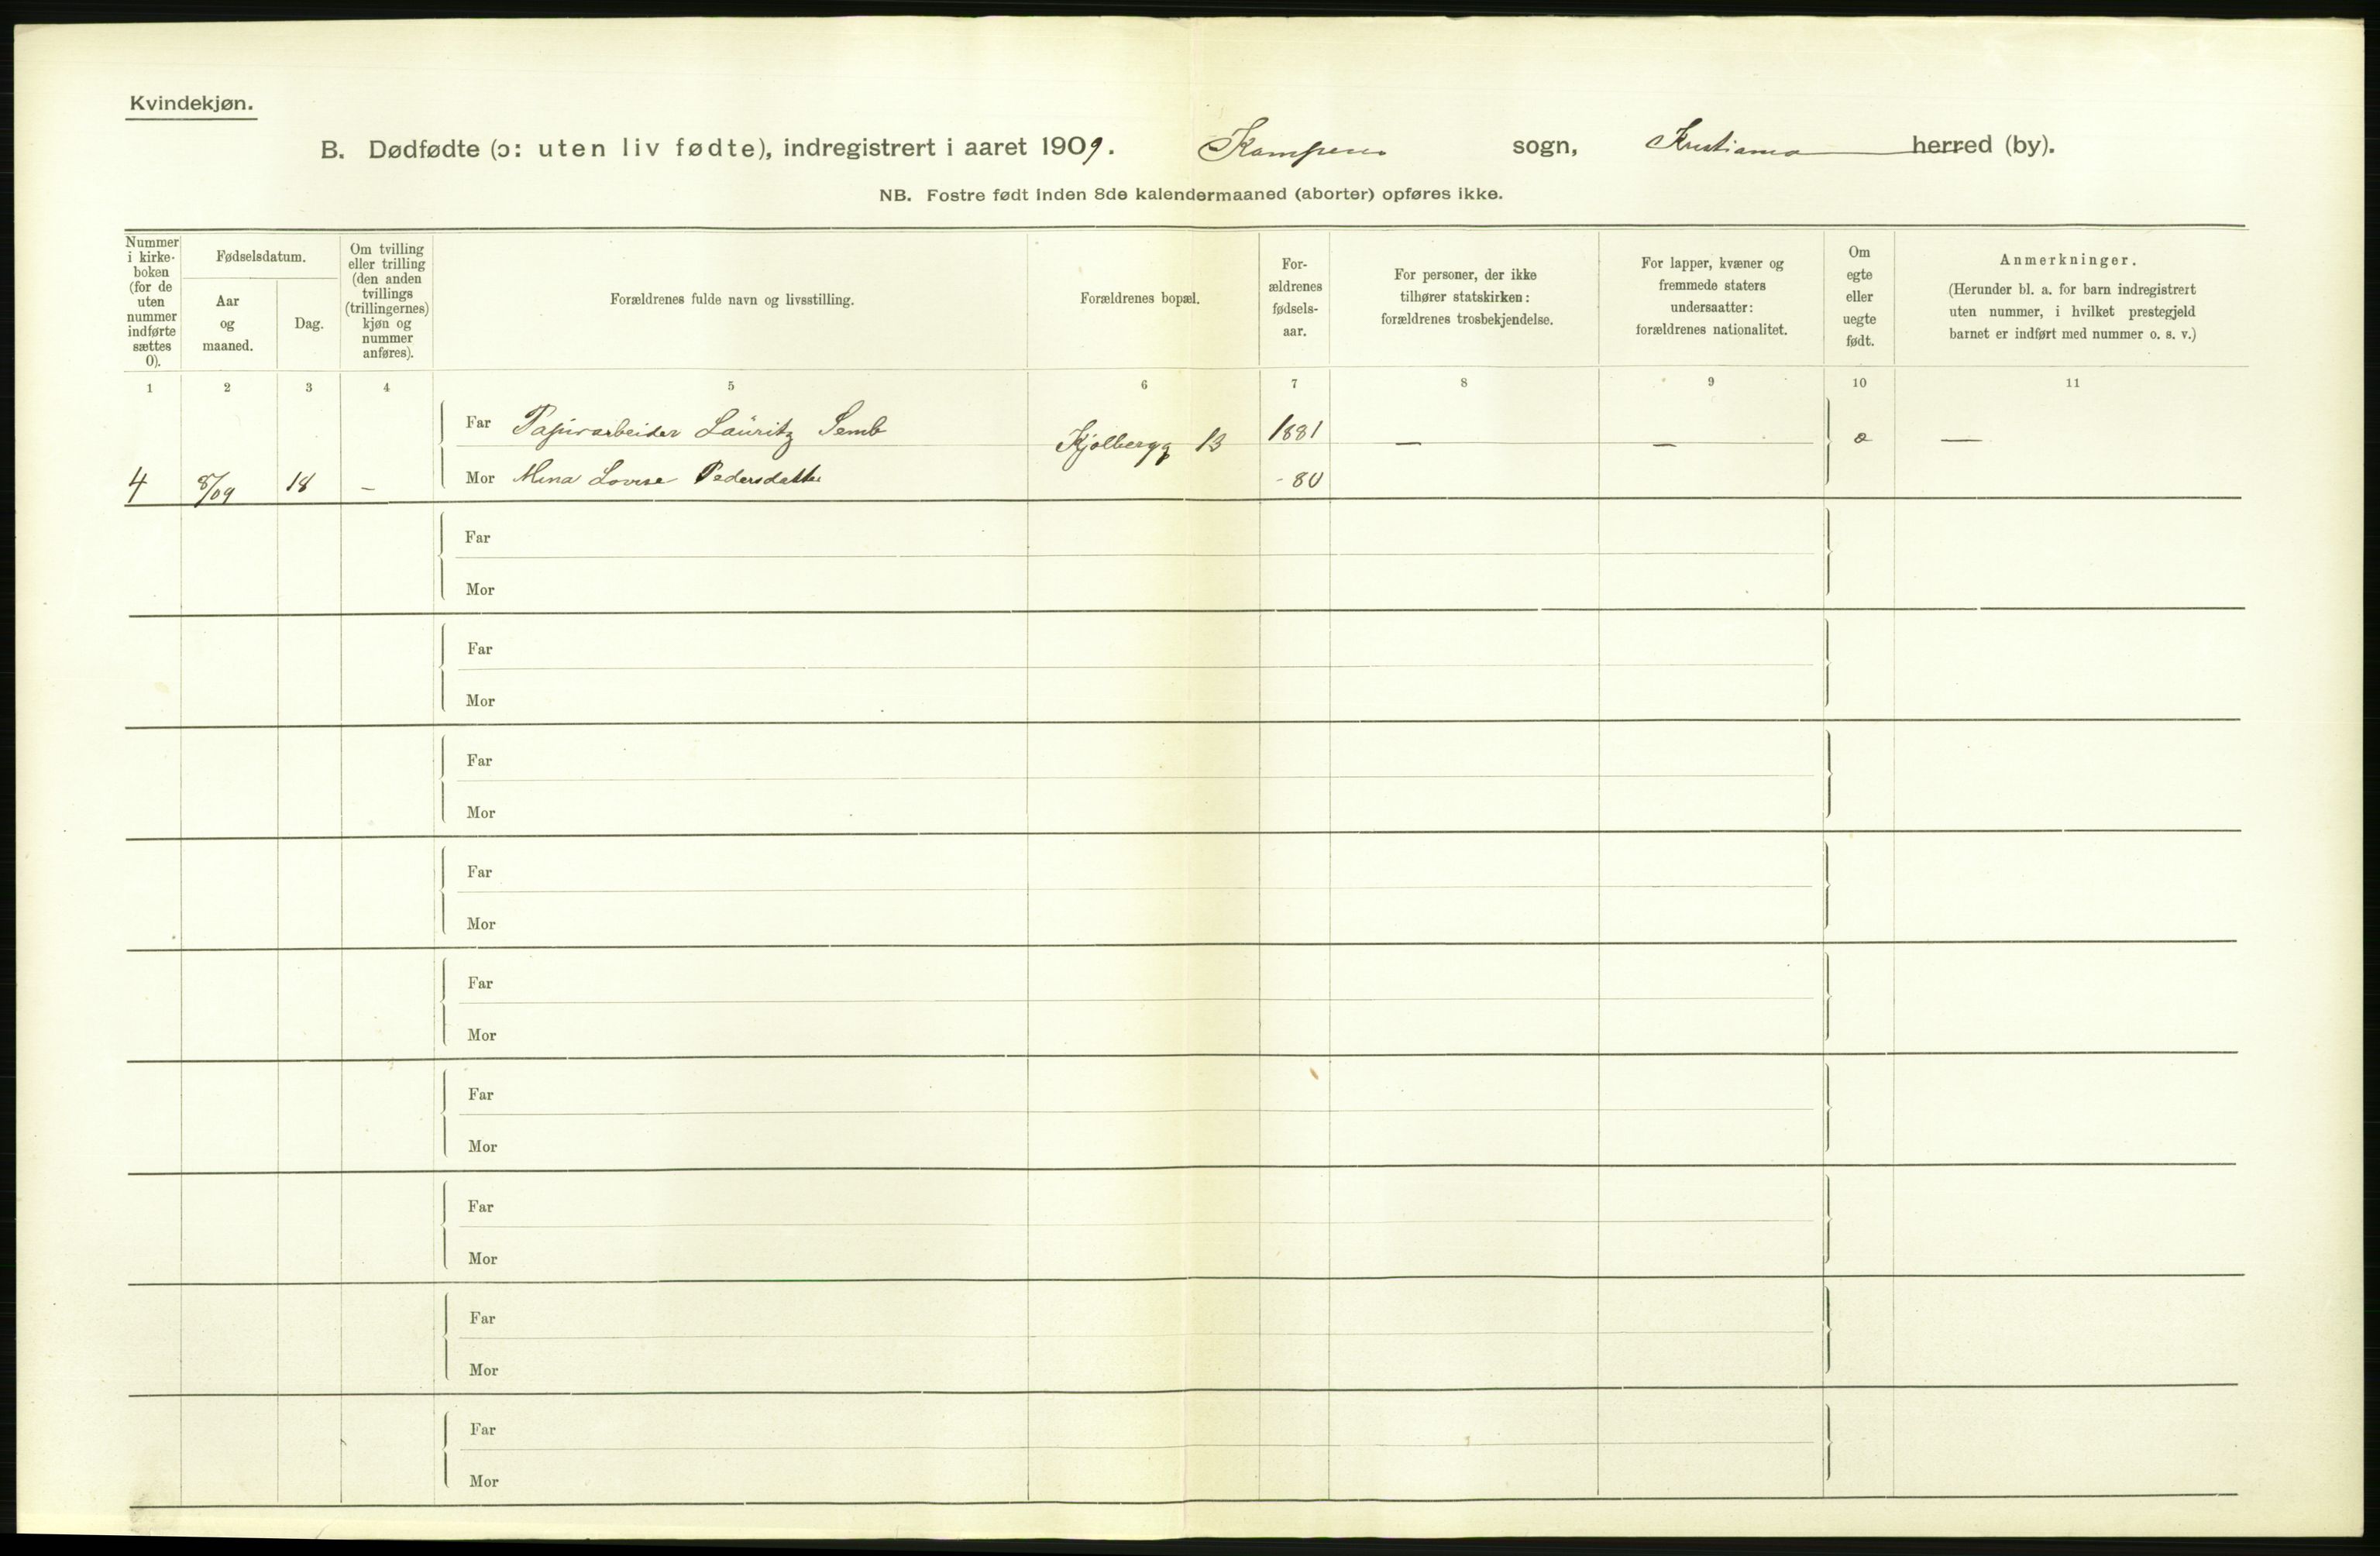 Kvindekjøn.
B. Dødfødte (ɔ: uten liv fødte), indregistrert i aaret 1909. Kampens sogn, Kristiania herred (by).
NB. Fostre født inden 8de kalendermaaned (aborter) opføres ikke.
Nummer i kirke-boken (for de uten nummer indførte sættes 0).
Fødselsdatum.
Aar og maaned.
Dag.
Om tvilling eller trilling (den anden tvillings (trillingernes) kjøn og nummer anføres).
Forældrenes fulde navn og livsstilling.
Forældrenes bopæl.
For-ældrenes fødsels-aar.
For personer, der ikke tilhører statskirken: forældrenes trosbekjendelse.
For lapper, kvæner og fremmede staters undersaatter: forældrenes nationalitet.
Om egte eller uegte født.
Anmerkninger.
(Herunder bl. a. for barn indregistrert uten nummer, i hvilket prestegjeld barnet er indført med nummer o. s. v.)
1 2 3 4 5 6 7 8 9 10 11
Far Papirarbeider Lauritz Semb Kjølbergg 13 1881 — — e —
4 8/09 18 – Mor Mina Lovise Pedersdatter - 80
Far
Mor
Far
Mor
Far
Mor
Far
Mor
Far
Mor
Far
Mor
Far
Mor
Far
Mor
Far
Mor